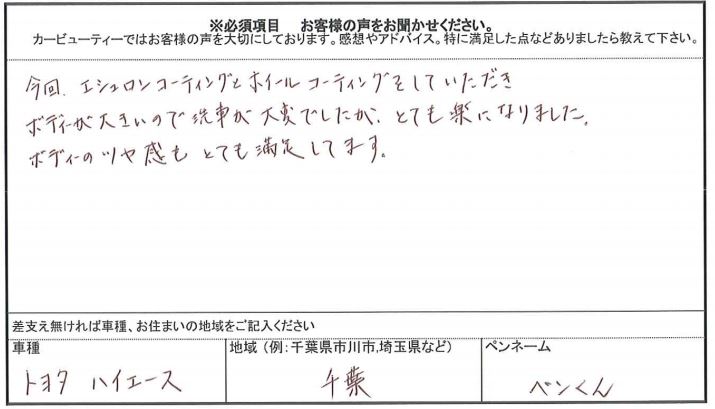 ※必須項目　お客様の声をお聞かせください。
カービューティーではお客様の声を大切にしております。感想やアドバイス。特に満足した点などありましたら教えて下さい。
今回、エシュロンコーティングとホイールコーティングをしていただき
ボディーが大きいので洗車が大変でしたが、とても楽になりました。
ボディーのツヤ感もとても満足してます。
差支え無ければ車種、お住まいの地域をご記入ください
車種
地域（例：千葉県市川市,埼玉県など）
ペンネーム
トヨタ ハイエース
千葉
ベンくん